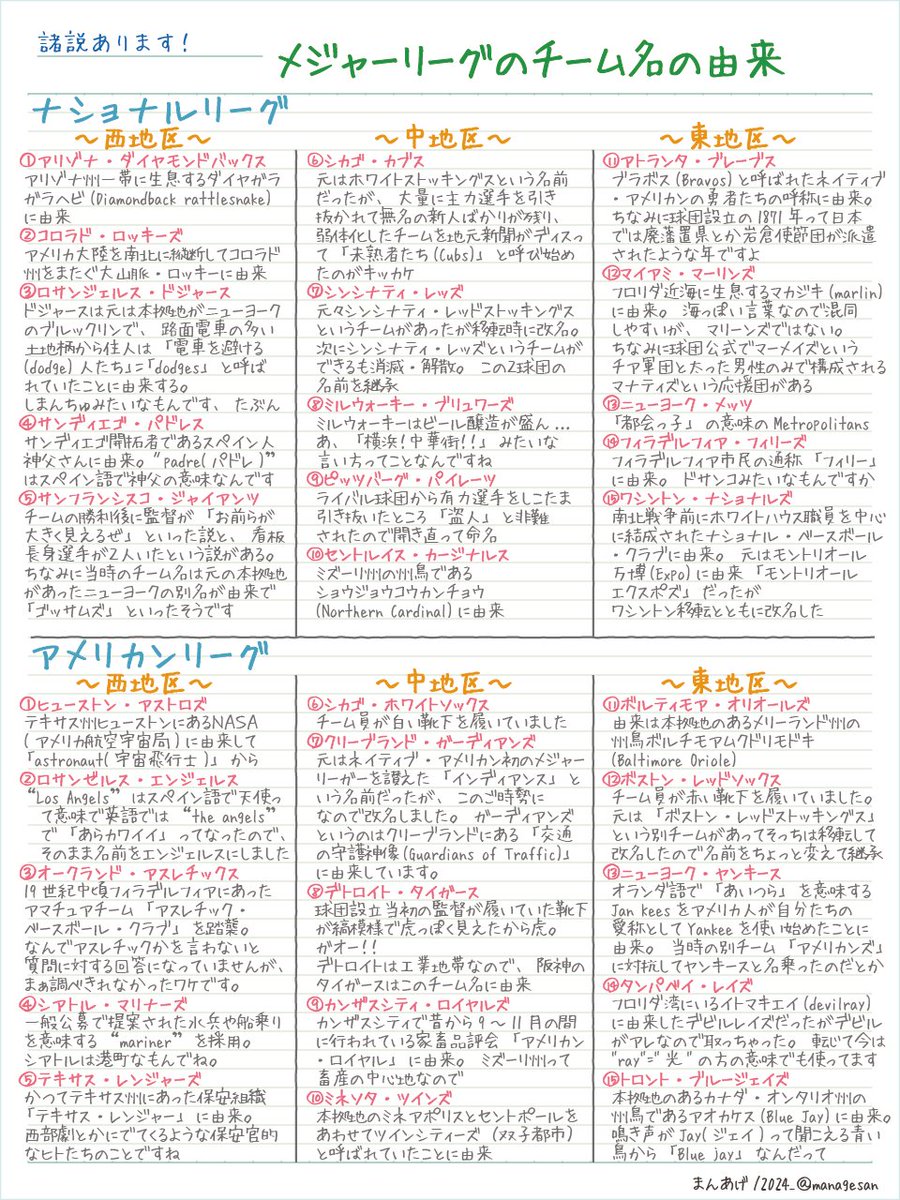 諸説あります!
メジャーリーグのチーム名の由来
ナショナルリーグ
～西地区～
①アリゾナ・ダイヤモンドバックス
アリゾナ州一帯に生息するダイヤガラ
ガラヘビ(Diamondback rattlesnake)
に由来
②コロラド・ロッキーズ
アメリカ大陸を南北に縦断してコロラド
州をまたぐ大山脈・ロッキーに由来
③ロサンジェルス・ドジャース
ドジャースは元は本拠地がニューヨーク
のブルックリンで、路面電車の多い
土地柄から住人は「電車を避ける
(dodge)人たち」=「dodges」と呼ば
れていたことに由来する。
しまんちゅみたいなもんです、たぶん
④サンディエゴ・パドレス
サンディエゴ開拓者であるスペイン人
神父さんに由来。"padre(パドレ)"
はスペイン語で神父の意味なんです
⑤サンフランシスコ・ジャイアンツ
チームの勝利後に監督が「お前らが
大きく見えるぜ」といった説と、看板
長身選手が2人いたという説がある。
ちなみに当時のチーム名は元の本拠地
があったニューヨークの別名が由来で
「ゴッサムズ」といったそうです
～中地区～
⑥シカゴ・カブス
元はホワイトストッキングスという名前
だったが、大量に主力選手を引き
抜かれて無名の新人ばかりが残り、
弱体化したチームを地元新聞がディスっ
て「未熟者たち(Cubs)」と呼び始め
たのがキッカケ
⑦シンシナティ・レッズ
元々シンシナティ・レッドストッキングス
というチームがあったが移転時に改名。
次にシンシナティ・レッズというチームが
できるも消滅・解散。この2球団の
名前を継承
⑧ミルウォーキー・ブリュワーズ
ミルウォーキーはビール醸造が盛ん...
あ、「横浜!中華街!!」みたいな
言い方ってことなんですね
⑨ピッツバーグ・パイレーツ
ライバル球団から有力選手をしこたま
引き抜いたところ「盗人」と非難
されたので開き直って命名
⑩セントルイス・カージナルス
ミズーリ州の州鳥である
ショウジョウコウカンチョウ
(Northern Cardinal)に由来
～東地区～
⑪アトランタ・ブレーブス
ブラボス(Bravos)と呼ばれたネイティブ
・アメリカンの勇者たちの呼称に由来。
ちなみに球団設立の1871年って日本
では廃藩置県とか岩倉使節団が派遣
されたような年ですよ
⑫マイアミ・マーリンズ
フロリダ近海に生息するマカジキ(marlin)
に由来。海っぽい言葉なので混同
しやすいが、マリーンズではない。
ちなみに球団公式でマーメイズという
チア軍団と太った男性のみで構成される
マナティズという応援団がある
⑬ニューヨーク・メッツ
「都会っ子」の意味のMetropolitans
⑭フィラデルフィア・フィリーズ
フィラデルフィア市民の通称「フィリー」
に由来。ドサンコみたいなもんですか
⑮ワシントン・ナショナルズ
南北戦争前にホワイトハウス職員を中心
に結成されたナショナル・ベースボール
・クラブに由来。元はモントリオール
万博(Expo)に由来「モントリオール
エクスポズ」だったが
ワシントン移転とともに改名した
アメリカンリーグ
～西地区～
①ヒューストン・アストロズ
テキサス州ヒューストンにあるNASA
(アメリカ航空宇宙局)に由来して
「astronaut(宇宙飛行士)」から
②ロサンゼルス・エンジェルス
"Los Angels"はスペイン語で天使っ
て意味で英語では"the angels"
で「あらカワイイ」ってなったので、
そのまま名前をエンジェルスにしました
③オークランド・アスレチックス
19世紀中頃フィラデルフィアにあった
アマチュアチーム「アスレチック・
ベースボール・クラブ」を踏襲。
なんでアスレチックかを言わないと
質問に対する回答になっていませんが、
まぁ調べきれなかったワケです。
④シアトル・マリナーズ
一般公募で提案された水兵や船乗り
を意味する"mariner"を採用。
シアトルは港町なもんでね。
⑤テキサス・レンジャーズ
かつてテキサス州にあった保安組織
「テキサス・レンジャー」に由来。
西部劇とかにでてくるような保安官的
なヒトたちのことですね
～中地区～
⑥シカゴ・ホワイトソックス
チーム員が白い靴下を履いていました
⑦クリーブランド・ガーディアンズ
元はネイティブ・アメリカン初のメジャー
リーガーを讃えた「インディアンス」と
いう名前だったが、このご時勢で
なので改名しました。ガーディアンズ
というのはクリーブランドにある「交通
の守護神像(Guardians of Traffic)」
に由来しています。
⑧デトロイト・タイガース
球団設立当初の監督が履いていた靴下
が縞模様で虎っぽく見えたから虎。
ガオー!!
デトロイトは工業地帯なので、阪神の
タイガースはこのチーム名に由来
⑨カンザスシティ・ロイヤルズ
カンザスシティで昔から9～11月の間
に行われている家畜品評会「アメリカン
・ロイヤル」に由来。ミズーリ州って
畜産の中心地なので
⑩ミネソタ・ツインズ
本拠地のミネアポリスとセントポールを
あわせてツインシティーズ(双子都市)
と呼ばれていたことに由来
～東地区～
⑪ボルティモア・オリオールズ
由来は本拠地のあるメリーランド州の
州鳥ボルチモアムクドリモドキ
(Baltimore Oriole)
⑫ボストン・レッドソックス
チーム員が赤い靴下を履いていました。
元は「ボストン・レッドストッキングス」
という別チームがあってそっちは移転して
改名したので名前をちょっと変えて継承
⑬ニューヨーク・ヤンキース
オランダ語で「あいつら」を意味する
Jan keesをアメリカ人が自分たちの
愛称としてYankeeを使い始めたことに
由来。当時の別チーム「アメリカンズ」
に対抗してヤンキースと名乗ったのだとか
⑭タンパベイ・レイズ
フロリダ湾にいるイトマキエイ(devilray)
に由来したデビルレイズだったがデビル
がアレなので取っちゃった。転じて今は
"ray"="光"の方の意味でも使ってます
⑮トロント・ブルージェイズ
本拠地のあるカナダ・オンタリオ州の
州鳥であるアオカケス(Blue Jay)に由来。
鳴き声がJay(ジェイ)って聞こえる青い
鳥から「Blue jay」なんだって
まんあげ/2024_@managesan